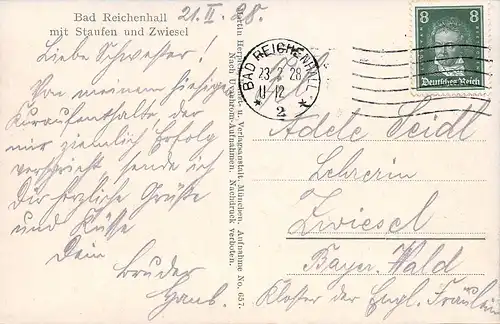 Bad Reichenhall
mit Staufen und Zwiesel
21. II. 28.
Liebe Schwester!
Von meinem hiesigen
Kuraufenthalte der
mir ziemlich Erfolg
verspricht sende ich
Dir herzliche Grüße
und Küsse
Dein
Bruder
Hans.
Martin Herp u. Verlagsanstalt, München. Aufnahme No. 657.
Nach Uvachrom-Aufnahmen. Nachdruck verboten.
BAD REICHENHALL
23 2 28
11-12
* 2 *
8 8
Deutsches Reich
Adele Seidl
Lehrerin
Zwiesel
Bayer. Wald
Kloster der Engl. Fräulein